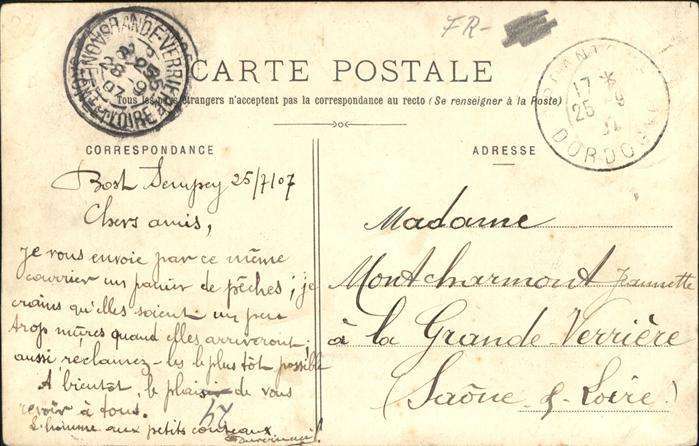 FR-
CARTE POSTALE
Tous les pays étrangers n'acceptent pas la correspondance au recto (Se renseigner à la Poste)
CORRESPONDANCE
ADRESSE
GRANDE VERRIERE
LOIRE
17 *
25
DORDOGNE
25/7/07
Chers amis,
je vous envoie par ce même
courrier un panier de pêches ; je
crains qu'elles soient un peu
trop mûres quand elles arriveront,
aussi reclamez-les le plus tôt possible
A bientôt, le plaisir de vous
revoir à tous.
L'homme aux petits couteaux
Madame
Montcharmont Jeannette
à la Grande-Verrière
(Saône & Loire)